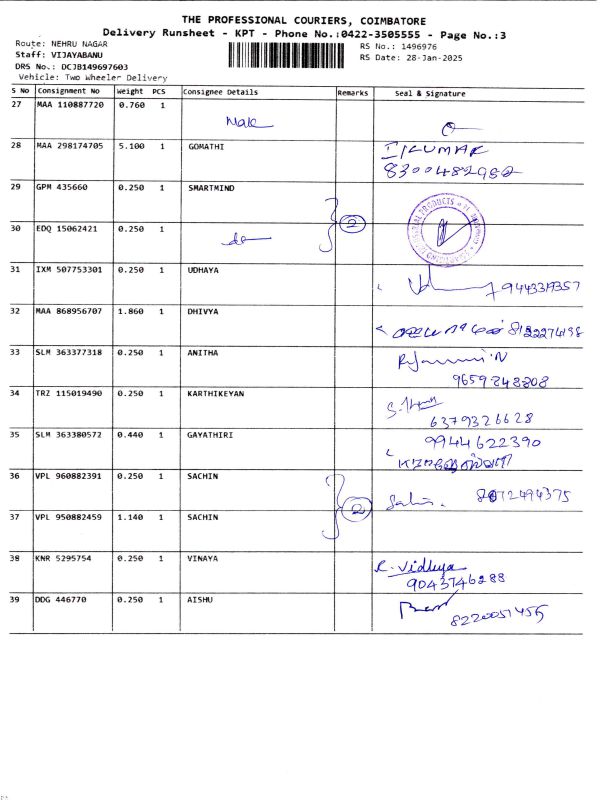 THE PROFESSIONAL COURIERS, COIMBATORE
Delivery Runsheet - KPT - Phone No.:0422-3505555 - Page No.:3
Route: NEHRU NAGAR
RS No.: 1496976
Staff: VIJAYABANU
RS Date: 28-Jan-2025
DRS No.: DCJB149697603
Vehicle: Two Wheeler Delivery
S No Consignment No Weight PCS Consignee Details Remarks Seal & Signature
27 MAA 110887720 0.760 1
28 MAA 298174705 5.100 1 GOMATHI
8300482982
29 GPM 435660 0.250 1 SMARTMIND
2
30 EDQ 15062421 0.250 1
31 IXM 507753301 0.250 1 UDHAYA
9443319357
32 MAA 868956707 1.860 1 DHIVYA
8122274198
33 SLM 363377318 0.250 1 ANITHA
9659848808
34 TRZ 115019490 0.250 1 KARTHIKEYAN
6379326628
35 SLM 363380572 0.440 1 GAYATHIRI
9944622390
36 VPL 960882391 0.250 1 SACHIN
2
8072494375
37 VPL 950882459 1.140 1 SACHIN
38 KNR 5295754 0.250 1 VINAYA
R. Vidhya
9043746288
39 DDG 446770 0.250 1 AISHU
8220051455